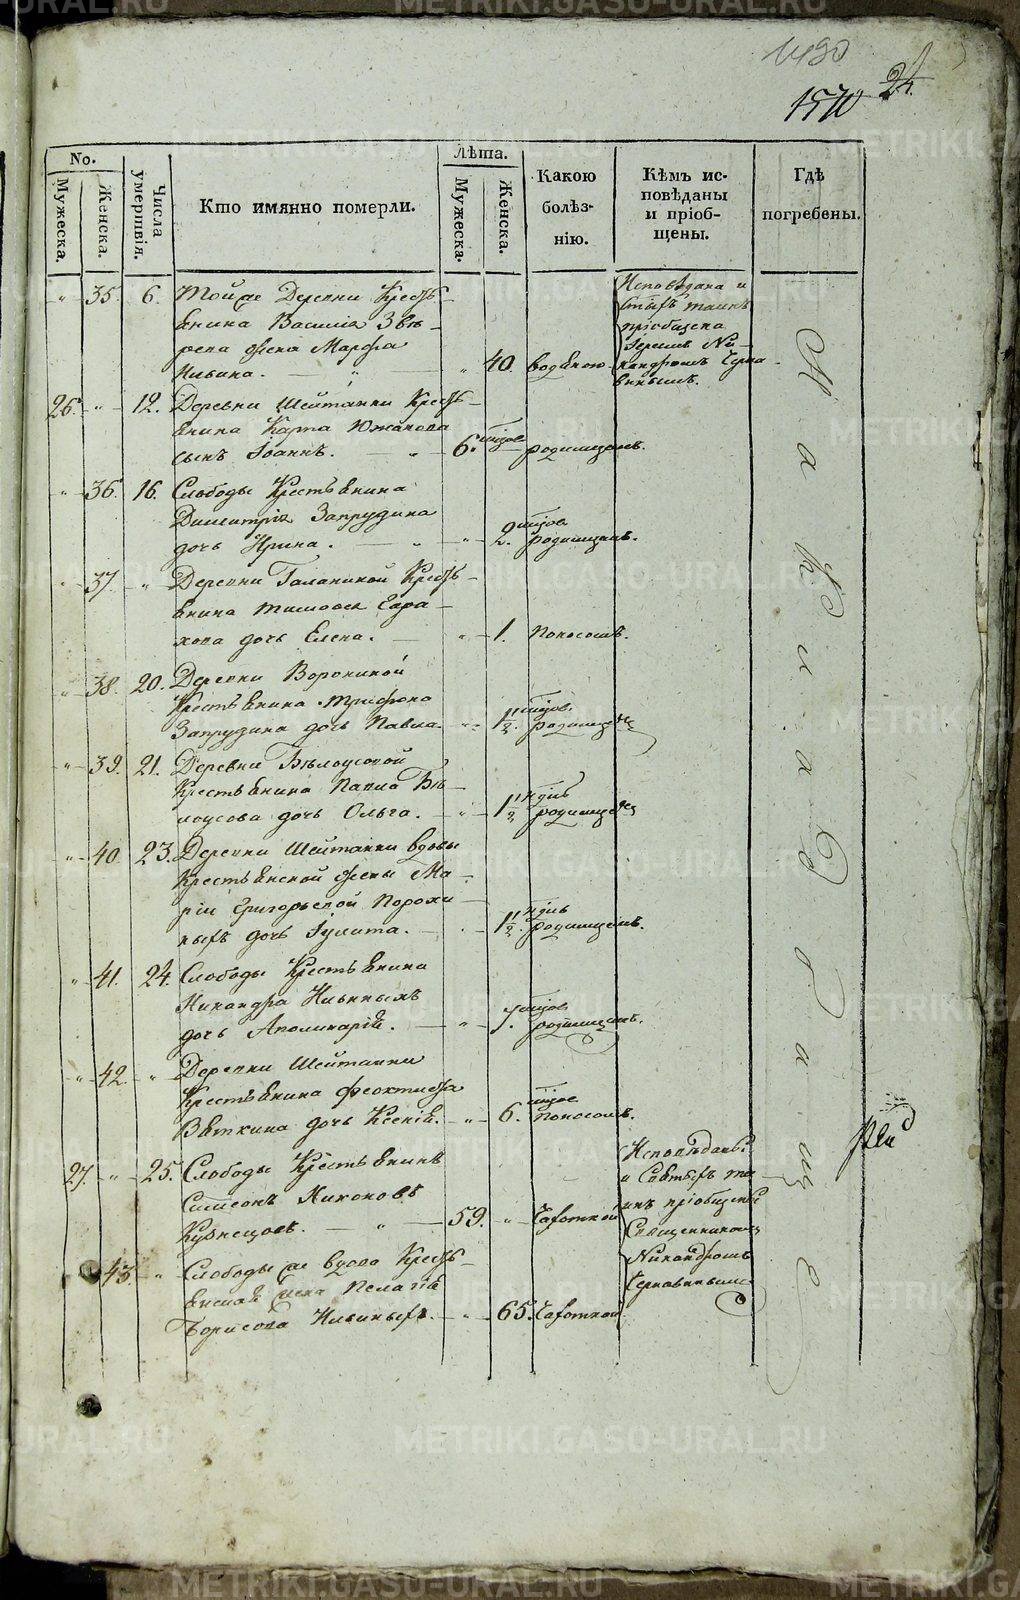 1490
1570 24.
No. Лѣта.
Мужеска. Женска. Числа умертвія. Кто имянно померли. Мужеска. Женска. Какою болѣз-нію. Кѣмъ ис-повѣданы и пріоб-щены. Гдѣ погребены.
" 35. 6. Той же Деревни Кресть-
янина Василія Звѣ-
рева жена Марфа
Ильина. " 40. водяною
Исповѣдана и
Стыхъ таинъ
пріобщена
Іереемъ Ни-
кандромъ Черна-
виныхъ.
26. " 12. Деревни Шейтанки Кресть-
янина Карпа Южакова
сынъ Іоаннъ. " 6. мцов родимцомъ.
" 36. 16. Слободы Крестьянина
Димитрія Запрудина
дочь Ирина. " " 2. мцов родимцомъ.
" 37. " Деревни Галаниной Кресть-
янина Тимофея Гора-
хова дочь Елена. " 1. Поносомъ.
" 38. 20. Деревни Ворониной
Крестьянина Трифона
Запрудина дочь Павла. " 1½. мцов. родимцемъ
" 39. 21. Деревни Бѣлоусовой
Крестьянина Павла Бѣ-
лоусова дочь Ольга. " 1½ ндль родимцемъ
" 40. 23. Деревни Шейтанки вдовы
Крестьянской жены Ма-
ріи Григорьевой Порохи-
ныхъ дочь Іулита. 1½. ндль родимцомъ.
" 41. 24. Слободы Крестьянина
Никандра Ильиныхъ
дочь Аполинарія. " мцов родимцомъ.
" 42. " Деревни Шейтанки
Крестьянина Феоктиста
Вяткина дочь Ксенія. " 6. мцов Поносомъ.
27. " 25. Слободы Крестьянинъ
Симеонъ Никоновъ
Кузнецовъ. " 59. " Чахоткой
Исповѣданы
и Святыхъ та-
инъ пріобщены
Священникомъ
Никандромъ
Чернавиныхъ
43. " Слободы же вдова Кресть-
янская жена Пелагія
Борисова Ильиныхъ. " 65. Чахоткой
На кладбище